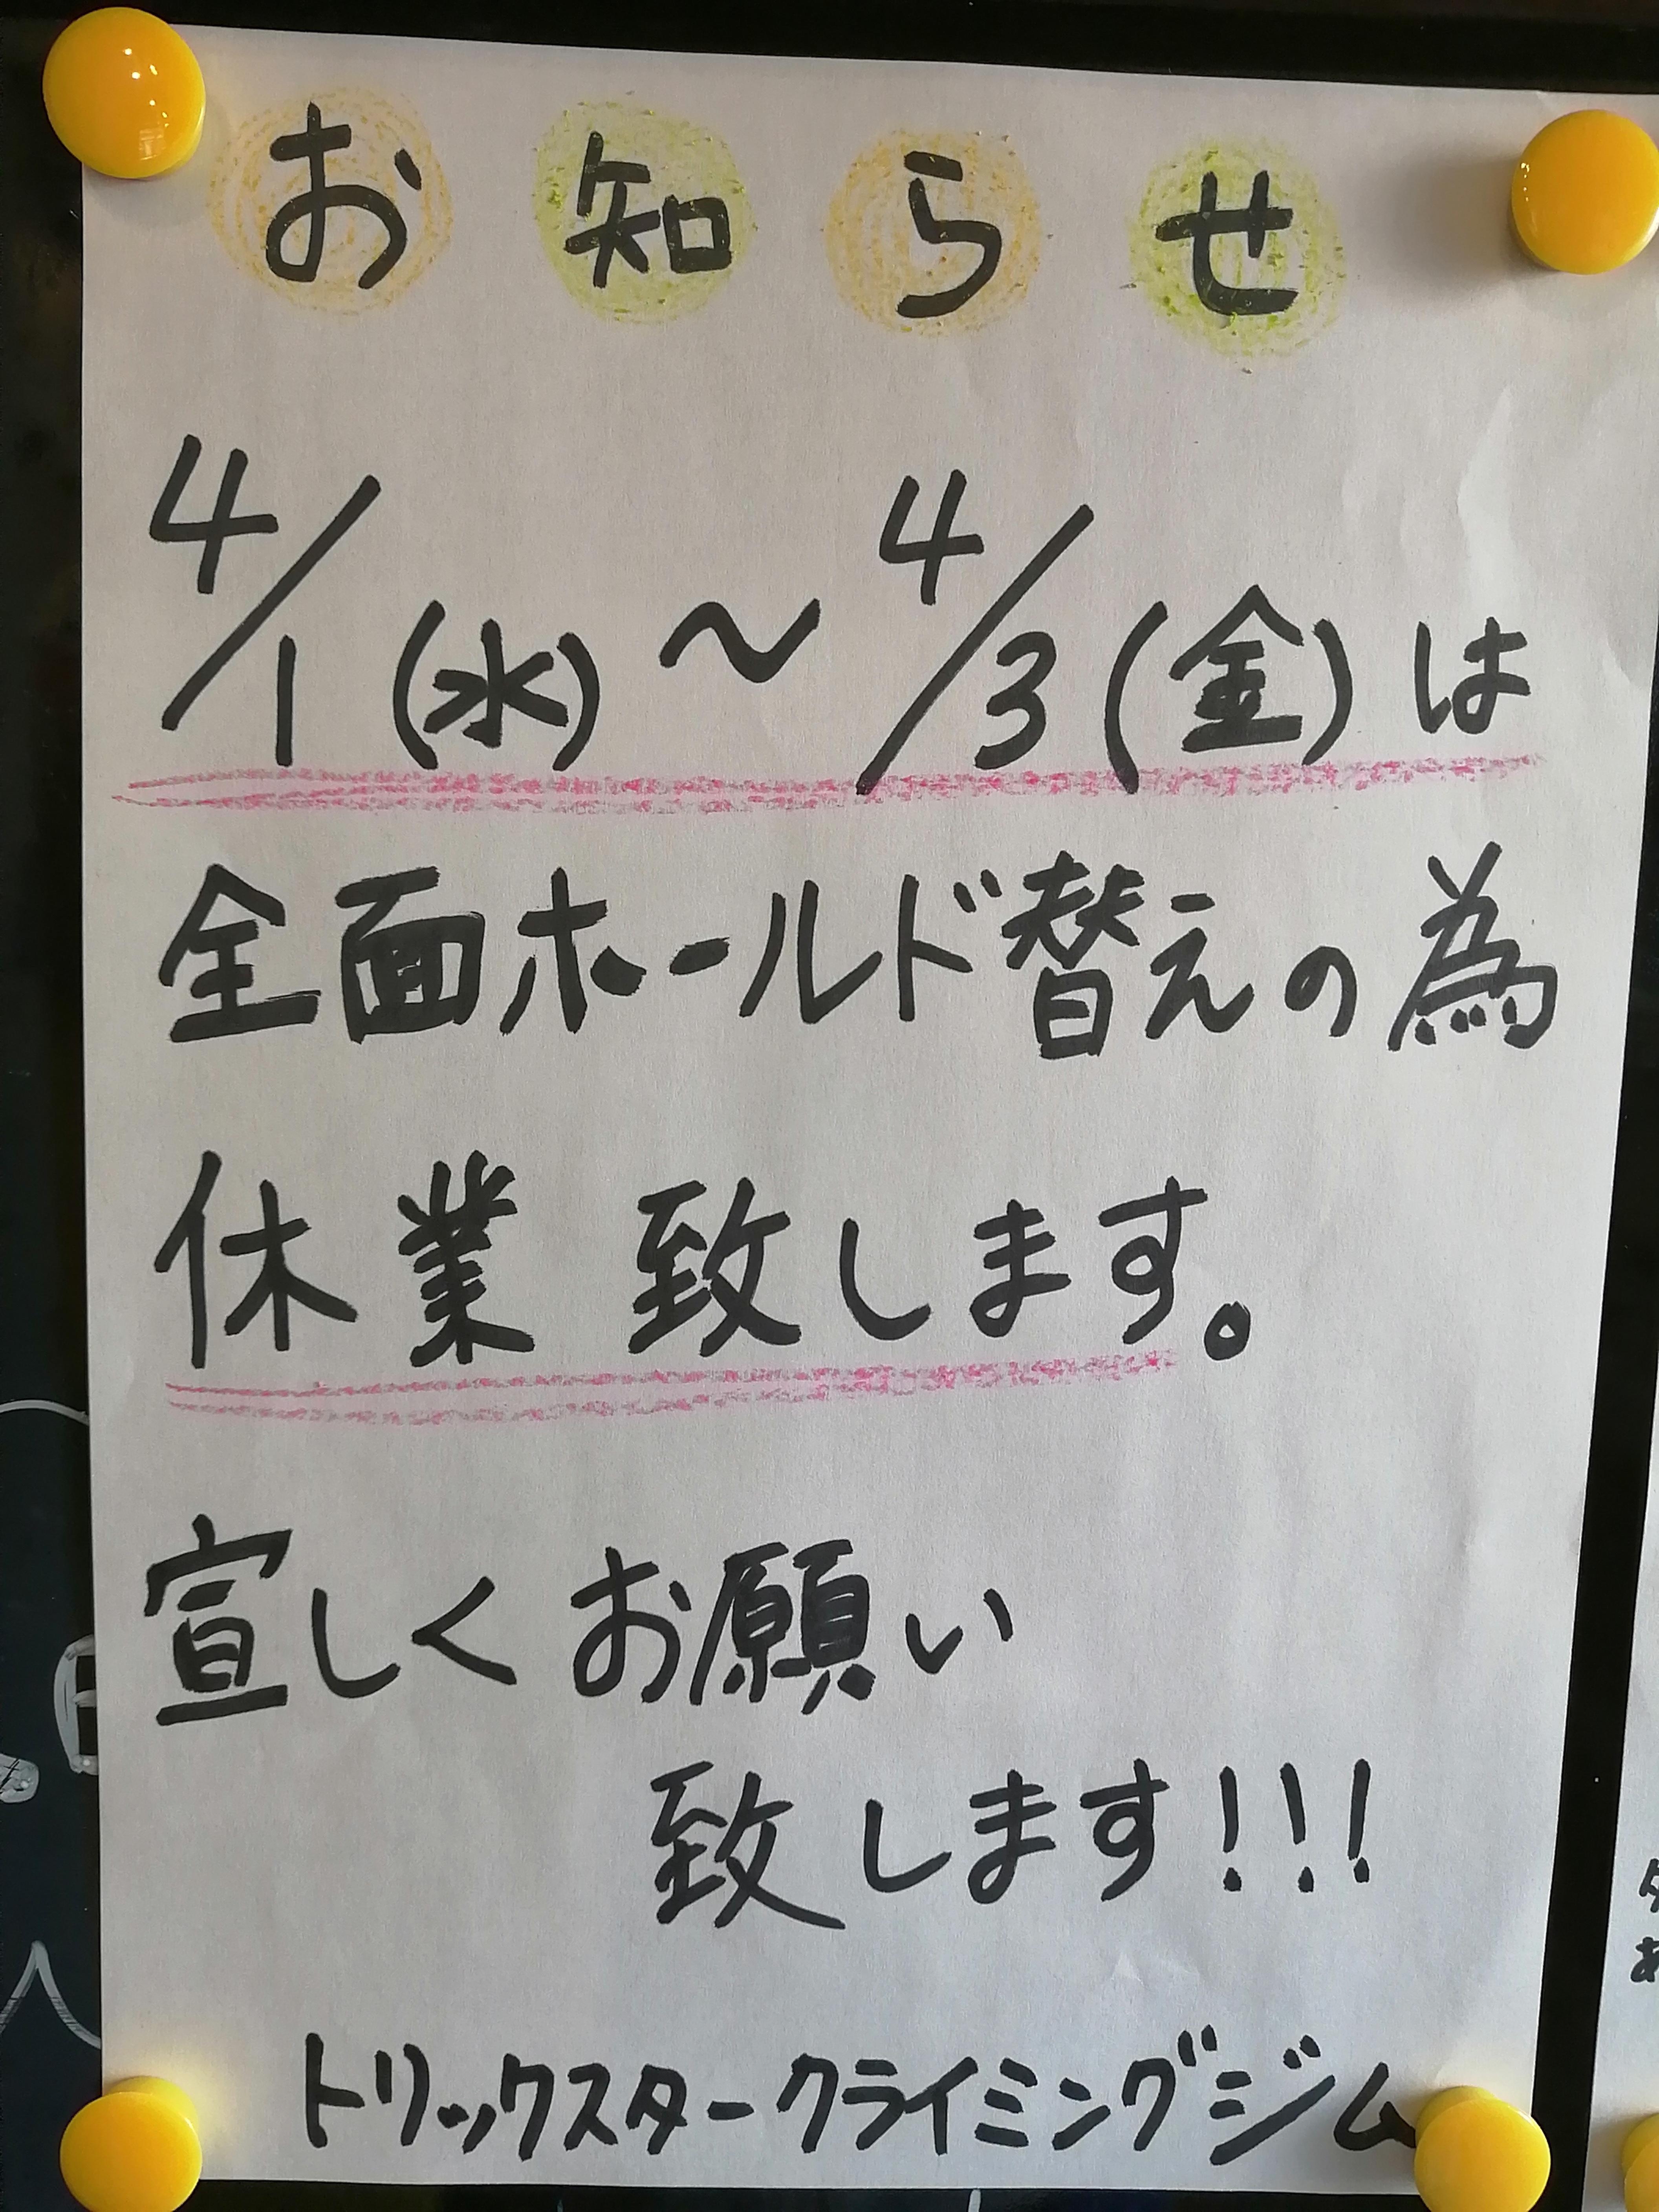 お知らせ
4/1(水)～4/3(金)は
全面ホールド替えの為
休業致します。
宜しくお願い
致します!!!
トリックスタークライミングジム